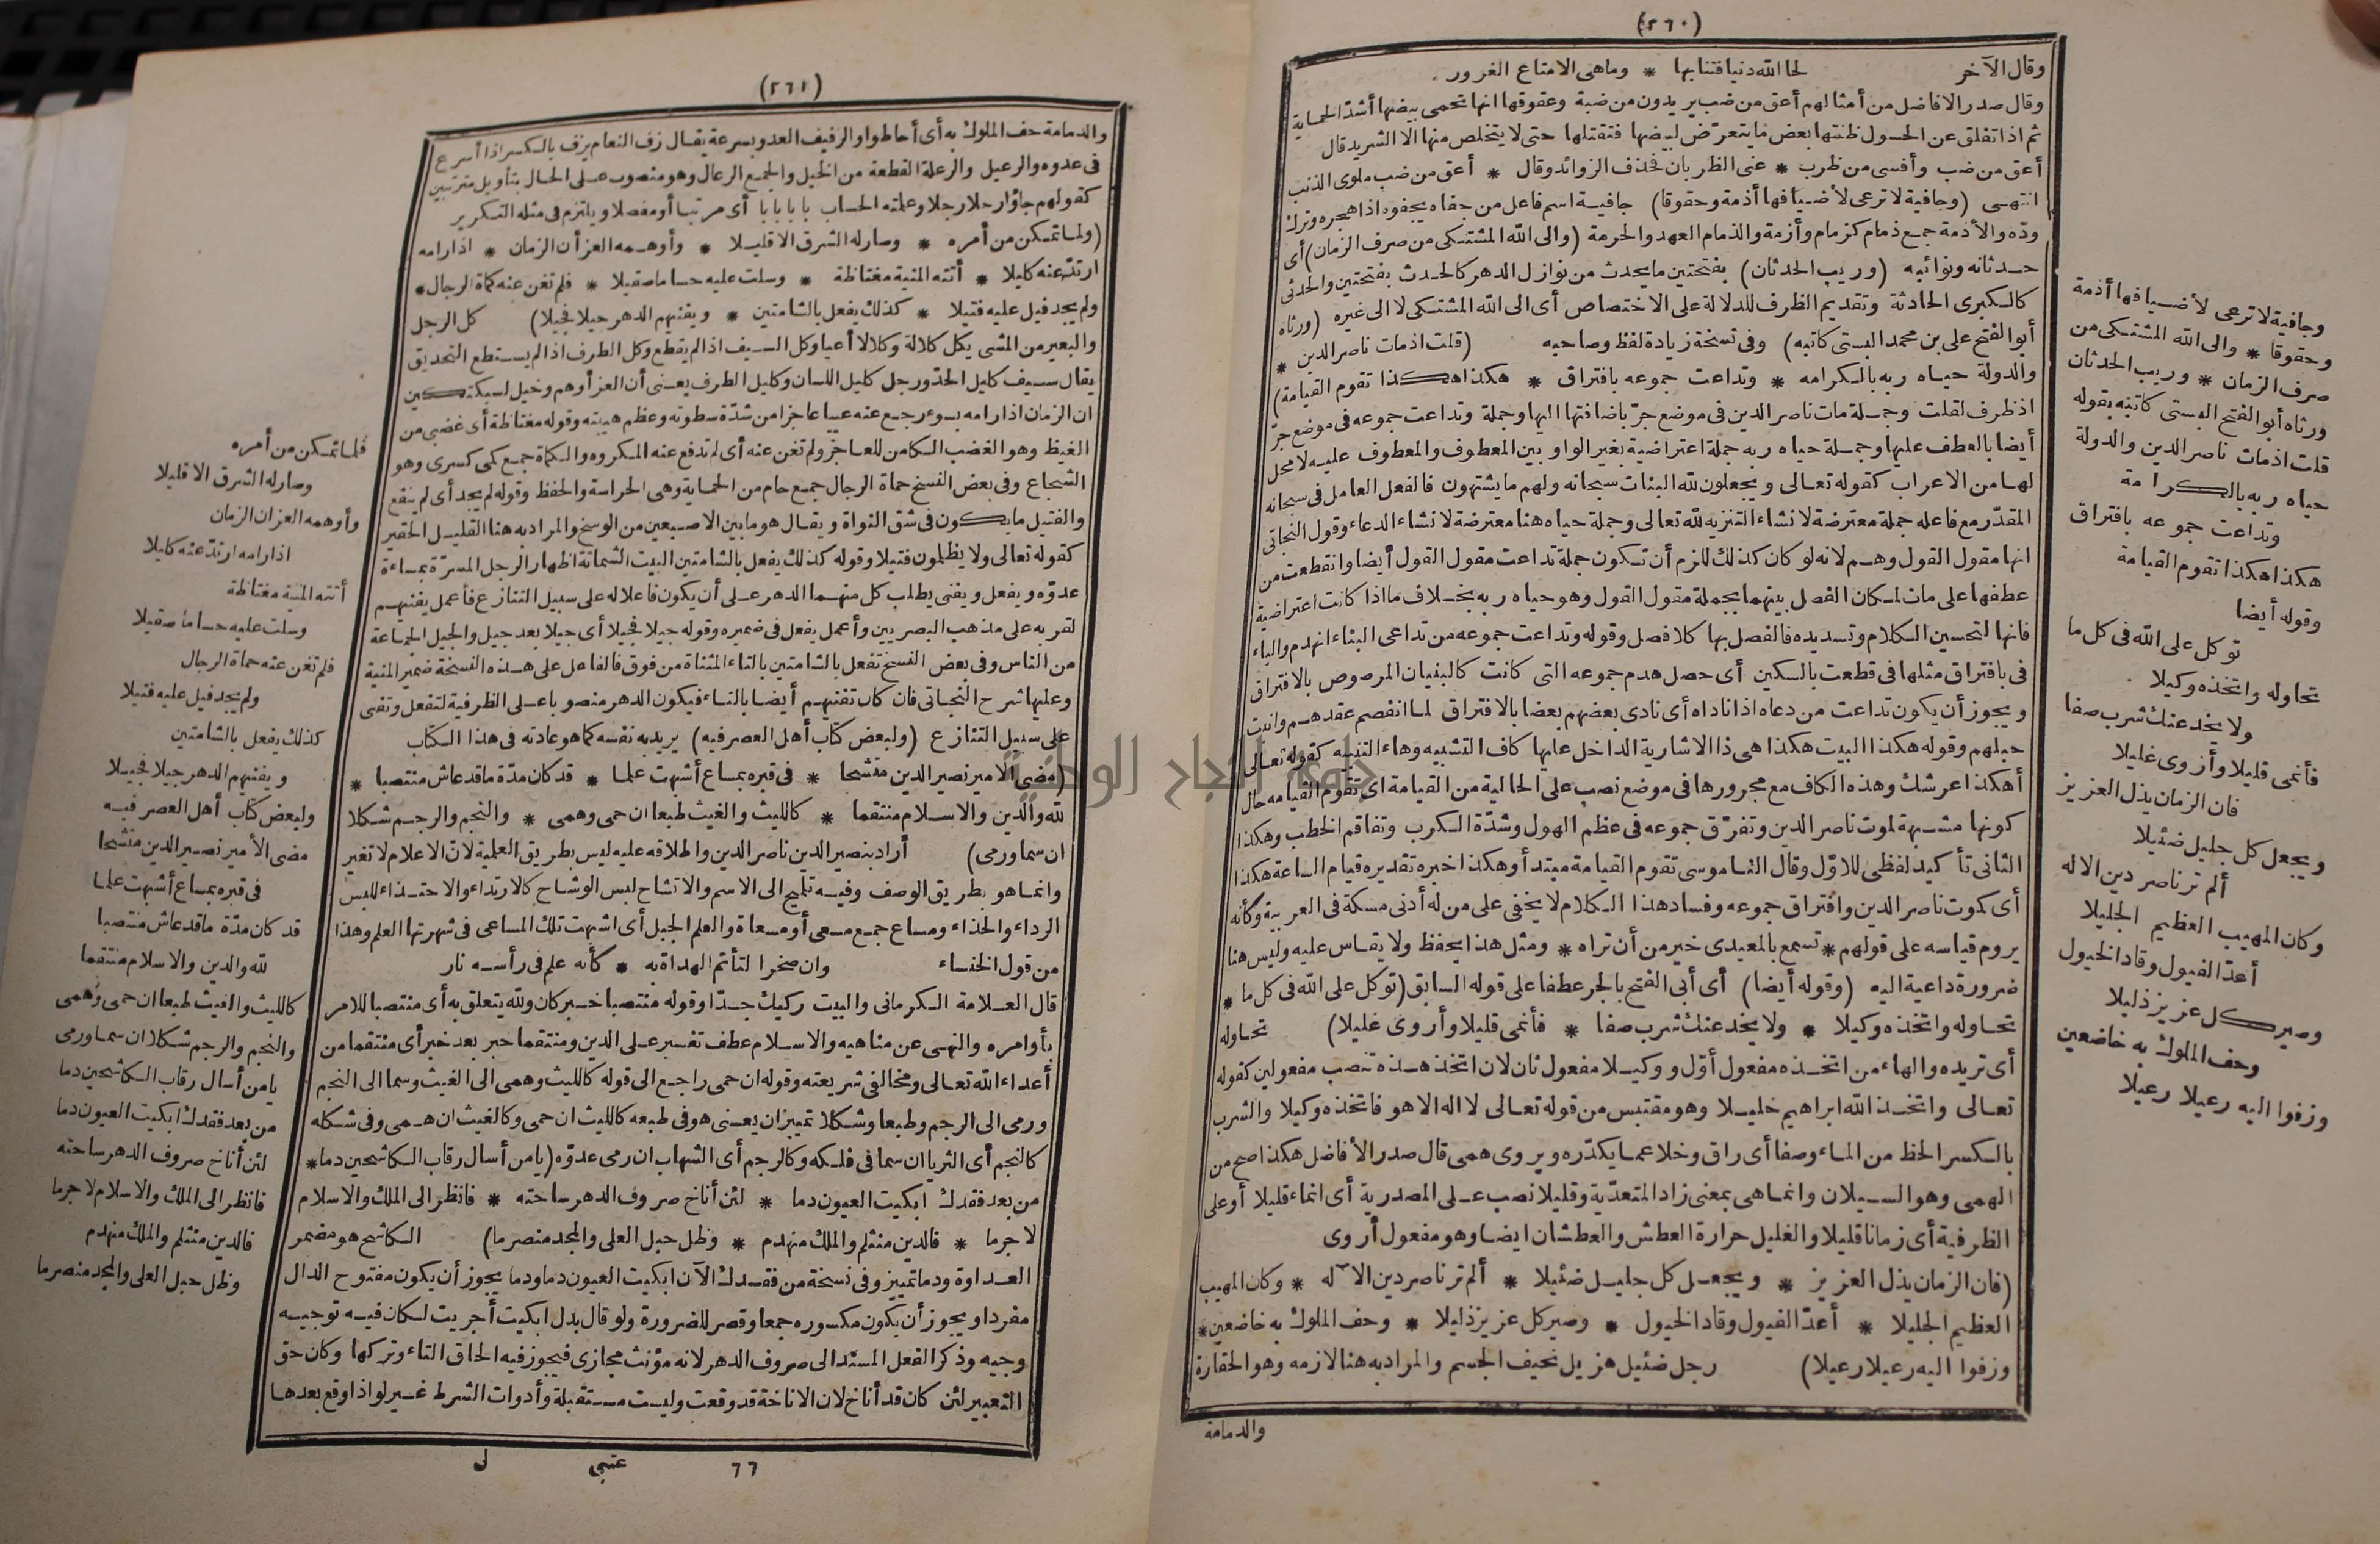 (٢٦٠)
وقال الآخر لحا الله دنيا فتنا بها * وما هى الا متاع الغرور
وقال صدر الافاضل من أمثالهم أعق من ضب يريدون من ضبة وعقوقها انها تحمى بيضها أشد الحماية
ثم اذا تفلق عن الحسول ظنتها بعض ما يتعرّض لبيضها فتقتلها حتى لا يتخلص منها الا الشريد قال
أعق من ضب وأفسى من ظرب * عنى الظربان فحذف الزوائد وقال * أعق من ضب ملوى الذنب
انتهى (وجافية لا ترعى لأضيافها أذمة وحقوقا) جافية اسم فاعل من جفاه يجفوه اذا هجره وترك
ودّه والأذمة جمع ذمام كزمام وأزمة والذمام العهد والحرمة (والى الله المشتكى من صرف الزمان) أى
حدثانه ونوائبه (وريب الحدثان) بفتحتين ما يحدث من نوازل الدهر كالحدث بفتحتين والحدثى
كالكبرى الحادثة وتقديم الظرف للدلالة على الاختصاص أى الى الله المشتكى لا الى غيره (ورثاه
أبو الفتح على بن محمد البستى كاتبه) وفى نسخة زيادة لفظ وصاحبه (قلت اذ مات ناصر الدين *
والدولة حياه ربه بالكرامه * وتداعت جموعه بافتراق * هكذا هكذا تقوم القيامة)
اذ ظرف لقلت وجملة مات ناصر الدين فى موضع جرّ باضافتها اليها وجملة وتداعت جموعه فى موضع جرّ
أيضا بالعطف عليها وجملة حياه ربه جملة اعتراضية بغير الواو بين المعطوف والمعطوف عليه لا محل
لها من الاعراب كقوله تعالى ويجعلون لله البنات سبحانه ولهم ما يشتهون فالفعل العامل فى سبحانه
المقدّر مع فاعله جملة معترضة لانشاء التنزيه لله تعالى وجملة حياه هنا معترضة لانشاء الدعاء وقول النجاتى
انها مقول القول وهم لانه لو كان كذلك للزم أن تكون جملة تداعت مقول القول أيضا وانقطعت من
عطفها على مات لمكان الفصل بينهما بجملة مقول القول وهو حياه ربه بخلاف ما اذا كانت اعتراضية
فانها لتحسين الكلام وتسديده فالفصل بها كلا فصل وقوله وتداعت جموعه من تداعى البناء انهدم والباء
فى بافتراق مثلها فى قطعت بالسكين أى حصل هدم جموعه التى كانت كالبنيان المرصوص بالافتراق
ويجوز أن يكون تداعت من دعاه اذا ناداه أى نادى بعضهم بعضا بالافتراق لما انفصم عقدهم وانبت
حبلهم وقوله هكذا البيت هكذا هى ذا الاشارية الداخل عليها كاف التشبيه وهاء التنبيه كقوله تعالى
أهكذا عرشك وهذه الكاف مع مجرورها فى موضع نصب على الحالية من القيامة أى تقوم القيامه حال
كونها مشبهة لموت ناصر الدين وتفرّق جموعه فى عظم الهول وشدّة الكرب وتفاقم الخطب وهكذا
الثانى تأكيد لفظى للاوّل وقال الناموسى تقوم القيامة مبتدأ وهكذا خبره تقديره قيام الساعة هكذا
أى كموت ناصر الدين وافتراق جموعه وفساد هذا الكلام لا يخفى على من له أدنى مسكة فى العربية وكأنه
يروم قياسه على قولهم * تسمع بالمعيدى خير من أن تراه * ومثل هذا يحفظ ولا يقاس عليه وليس هنا
ضرورة داعية اليه (وقوله أيضا) أى أبى الفتح بالجر عطفا على قوله السابق (توكل على الله فى كل ما *
تحاوله واتخذه وكيلا * ولا يخدعنك شرب صفا * فأنمى قليلا وأروى غليلا) تحاوله
أى تريده والهاء من اتخذه مفعول أوّل ووكيلا مفعول ثان لان اتخذ هذه تنصب مفعولين كقوله
تعالى واتخذ الله ابراهيم خليلا وهو مقتبس من قوله تعالى لا اله الا هو فاتخذه وكيلا والشرب
بالكسر الحظ من الماء وصفا أى راق وخلا عما يكدّره ويروى همى قال صدر الأفاضل هكذا صح من
الهمى وهو السيلان وانما هى بمعنى زاد المتعدّية وقليلا نصب على المصدرية أى انماء قليلا أو على
الظرفية أى زمانا قليلا والغليل حرارة العطش والعطشان ايضا وهو مفعول أروى
(فان الزمان يذل العزيز * ويجعل كل جليل ضئيلا * ألم تر ناصر دين الاله * وكان المهيب
العظيم الجليلا * أعدّ الفيول وقاد الخيول * وصير كل عزيز ذليلا * وحف الملوك به خاضعين *
وزفوا اليه رعيلا رعيلا) رجل ضئيل هزيل نحيف الجسم والمراد به هنا لازمه وهو الحقارة
والدمامة
وجافية لا ترعى لأضيافها أذمة
وحقوقا * والى الله المشتكى من
صرف الزمان * وريب الحدثان
ورثاه أبو الفتح البستى كاتبه بقوله
قلت اذ مات ناصر الدين والدولة
حياه ربه بالكرامة
وتداعت جموعه بافتراق
هكذا هكذا تقوم القيامة
وقوله أيضا
توكل على الله فى كل ما
تحاوله واتخذه وكيلا
ولا يخدعنك شرب صفا
فأنمى قليلا وأروى غليلا
فان الزمان يذل العزيز
ويجعل كل جليل ضئيلا
ألم تر ناصر دين الاله
وكان المهيب العظيم الجليلا
أعدّ الفيول وقاد الخيول
وصير كل عزيز ذليلا
وحف الملوك به خاضعين
وزفوا اليه رعيلا رعيلا
(٢٦١)
والدمامة حف الملوك به أى أحاطوا والزفيف العدو بسرعة يقال زف النعام يزف بالكسر اذا أسرع
فى عدوه والرعيل والرعلة القطعة من الخيل والجمع الرعال وهو منصوب على الحال بتأويل مترتبين
كقولهم جاؤا رجلا رجلا وعلمته الحساب بابا بابا أى مرتبا أو مفصلا ويلتزم فى مثله التكرير
(ولما تمكن من أمره * وصار له الشرق الا قليلا * وأوهمه العز أن الزمان * اذا رامه
ارتدّ عنه كليلا * أتته المنية مغتاظة * وسلت عليه حساما صقيلا * فلم تغن عنه كماة الرجال *
ولم يجد فيل عليه فتيلا * كذلك يفعل بالشامتين * ويفنيهم الدهر جيلا فجيلا) كل الرجل
والبعير من المشى يكل كلالة وكلالا أعيا وكل السيف اذا لم يقطع وكل الطرف اذا لم يستطع التحديق
يقال سيف كليل الحدّ ورجل كليل اللسان وكليل الطرف يعنى أن العز أوهم وخيل لسبكتكين
ان الزمان اذا رامه بسوء رجع عنه عييا عاجزا من شدّة سطوته وعظم هيبته وقوله مغتاظة أى غضبى من
الغيظ وهو الغضب الكامن للعاجز ولم تغن عنه أى لم تدفع عنه المكروه والكماة جمع كمى كسرى وهو
الشجاع وفى بعض النسخ حماة الرجال جمع حام من الحماية وهى الحراسة والحفظ وقوله لم يجد أى لم ينفع
والفتيل ما يكون فى شق النواة ويقال هو ما بين الاصبعين من الوسخ والمراد به هنا القليل الحقير
كقوله تعالى ولا يظلمون فتيلا وقوله كذلك يفعل بالشامتين البيت الشماتة اظهار الرجل المسرّة بمساءة
عدوّه ويفعل ويفنى يطلب كل منهما الدهر على أن يكون فاعلا له على سبيل التنازع فأعمل يفنيهم
لقربه على مذهب البصريين وأعمل يفعل فى ضميره وقوله جيلا فجيلا أى جيلا بعد جيل والجيل الجماعة
من الناس وفى بعض النسخ تفعل بالشامتين بالتاء المثناة من فوق فالفاعل على هذه النسخة ضمير المنية
وعليها شرح النجاتى فان كان تفنيهم أيضا بالتاء فيكون الدهر منصوبا على الظرفية لتفعل وتفنى
على سبيل التنازع (ولبعض كتاب أهل العصر فيه) يريد به نفسه كما هو عادته فى هذا الكتاب
(مضى الامير نصير الدين متشحا * فى قبره بمساع أشبهت علما * قد كان مدّة ما قد عاش منتصبا *
لله والدين والاسلام منتقما * كالليث والغيث طبعا ان حمى وهمى * والنجم والرجم شكلا
ان سما ورمى) أراد بنصير الدين ناصر الدين واطلاقه عليه ليس بطريق العلمية لانّ الاعلام لا تغير
وانما هو بطريق الوصف وفيه تلميح الى الاسم والاتشاح لبس الوشاح كالارتداء والاحتذاء للبس
الرداء والحذاء ومساع جمع مسعى أو مسعاة والعلم الجبل أى اشبهت تلك المساعى فى شهرتها العلم وهذا
من قول الخنساء وان صخرا لتأتم الهداة به * كأنه علم فى رأسه نار
قال العلامة الكرمانى والبيت ركيك جدّا وقوله منتصبا خبر كان ولله يتعلق به أى منتصبا للامر
بأوامره والنهى عن مناهيه والاسلام عطف تفسير على الدين ومنتقما خبر بعد خبر أى منتقما من
أعداء الله تعالى ومخالفى شريعته وقوله ان حمى راجع الى قوله كالليث وهمى الى الغيث وسما الى النجم
ورمى الى الرجم وطبعا وشكلا تمييزان يعنى هو فى طبعه كالليث ان حمى وكالغيث ان همى وفى شكله
كالنجم أى الثريا ان سما فى فلكه وكالرجم أى الشهاب ان رمى عدوّه (يا من أسال رقاب الكاشحين دما *
من بعد فقدك ابكيت العيون دما * لئن أناخ صروف الدهر ساحته * فانظر الى الملك والاسلام
لا جرما * فالدين منثلم والملك منهدم * وظل حبل العلى والمجد منصرما) الكاشح هو مضمر
العداوة ودما تمييز وفى نسخة من فقدك الآن ابكيت العيون دما ودما يجوز أن يكون مفتوح الدال
مفردا ويجوز أن يكون مكسوره جمعا وقصر للضرورة ولو قال بدل ابكيت أجريت لكان فيه توجيه
وجيه وذكر الفعل المسند الى صروف الدهر لانه مؤنث مجازى فيجوز فيه الحاق التاء وتركها وكان حق
التعبير لئن كان قد أناخ لان الاناخة قد وقعت وليست مستقبلة وأدوات الشرط غير لو اذا وقع بعدها
٦٦ عتبى ل
فلما تمكن من أمره
وصار له الشرق الا قليلا
وأوهمه العز ان الزمان
اذا رامه ارتدّ عنه كليلا
أتته المنية مغتاظة
وسلت عليه حساما صقيلا
فلم تغن عنه حماة الرجال
ولم يجد فيل عليه فتيلا
كذلك يفعل بالشامتين
ويفنيهم الدهر جيلا فجيلا
ولبعض كتاب أهل العصر فيه
مضى الأمير نصير الدين متشحا
فى قبره بمساع أشبهت علما
قد كان مدّة ما قد عاش منتصبا
لله والدين والاسلام منتقما
كالليث والغيث طبعا ان حمى وهمى
والنجم والرجم شكلا ان سما ورمى
يا من أسال رقاب الكاشحين دما
من بعد فقدك ابكيت العيون دما
لئن أناخ صروف الدهر ساحته
فانظر الى الملك والاسلام لا جرما
فالدين منثلم والملك منهدم
وظل حبل العلى والمجد منصرما
جامعة النجاح الوطنية